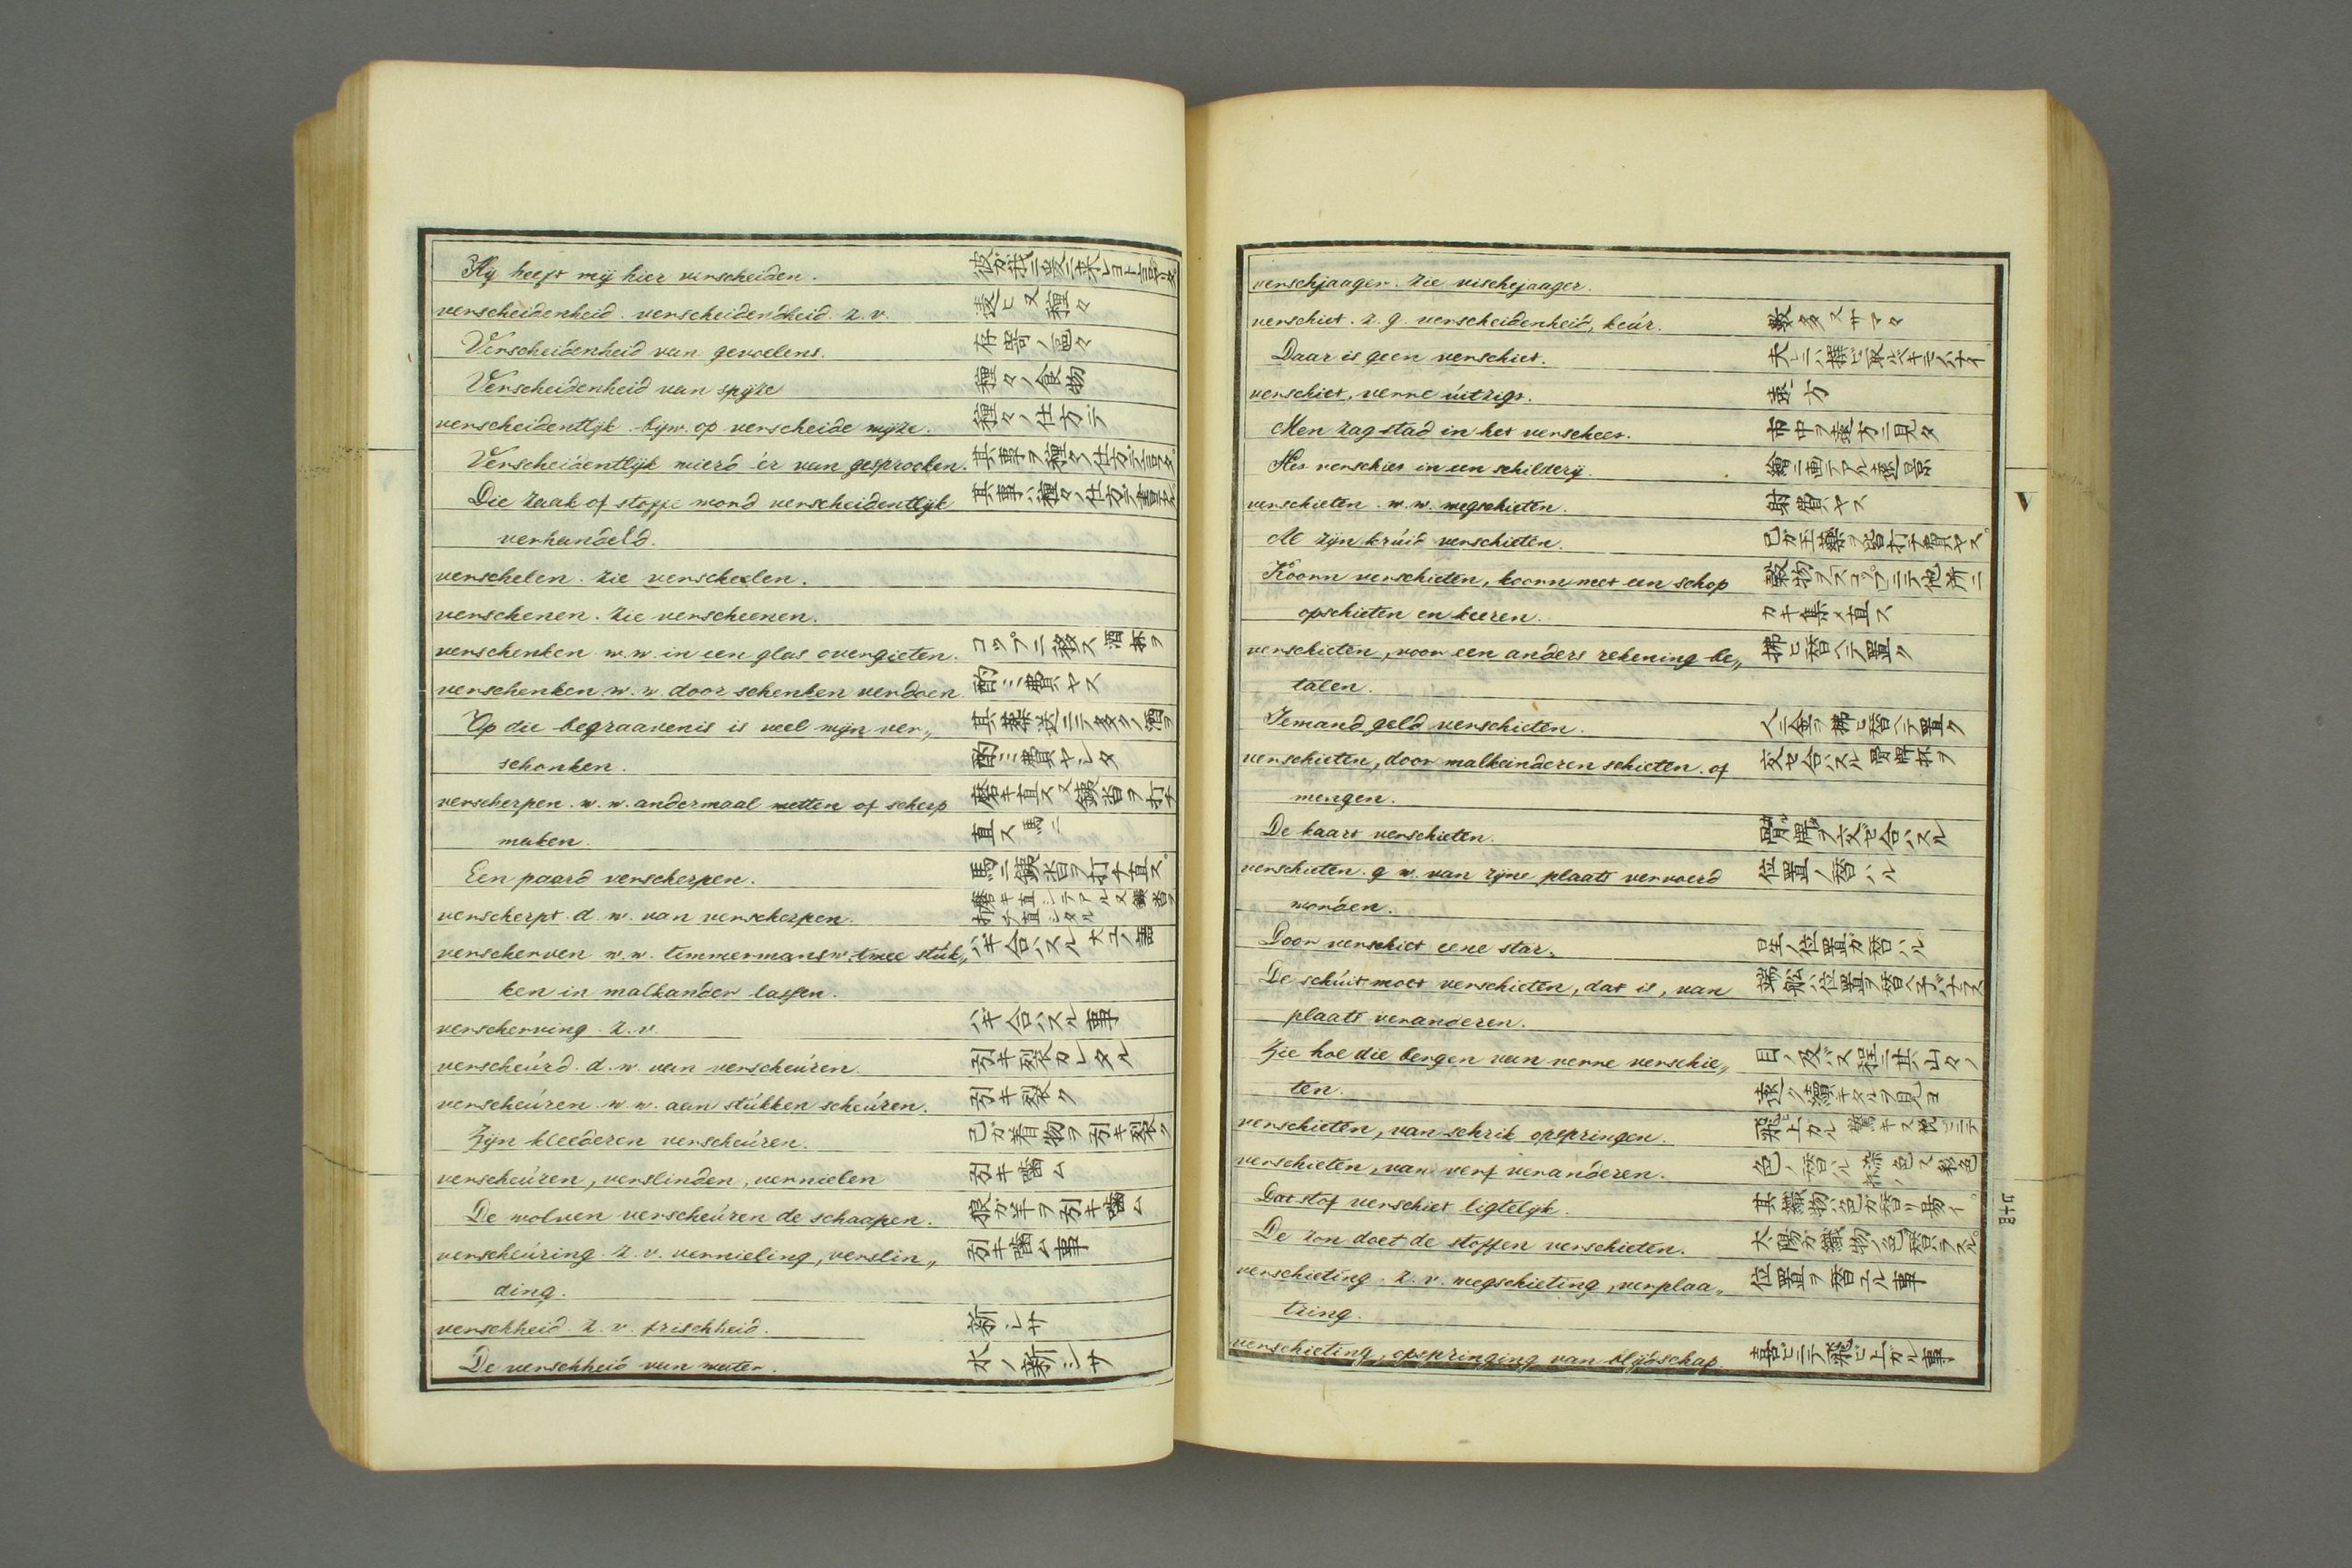 Hij heeft mij hier verscheiden. 彼ガ我ニ爰ニ来レヨト言フタ
verscheidenheid. verscheidendheid. z. v. 違ヒ又種々
Verscheidenheid van gevoelens. 存寄ノ區々
Verscheidenheid van spijze 種々ノ食物
verscheidentlijk. bijw. op verscheide wijze. 種々ノ仕方デ
Verscheidentlijk wierd 'er van gesprooken. 其事ヲ種々ノ仕方デ言フタ
Die zaak of stoffe word verscheidentlijk 其事ハ種々ノ仕方デ
verhandeld.
verschelen. zie verscheelen.
verschenen. zie verscheenen.
verschenken. w. w. in een glas overgieten. コップニ移ス 酒抔ヲ
verschenken. w. w. door schenken verdoen. 酌ミ費ヤス
Op die begraavenis is veel wijn ver„ 其葬送ニテ多クノ酒ヲ
schonken. 酌ミ費ヤシタ
verscherpen. w. w. andermaal wetten of scherp 磨キ直ス又鐵沓ヲ打チ
maken. 直ス 馬ニ
Een paard verscherpen. 馬ニ鐵沓ヲ打チ直ス
verscherpt. d. w. van verscherpen. 磨キ直シテアル又鐵沓ヲ打チ直シタル
verscherven w. w. timmermansw. twee stúk„ ハギ合ハスル 大工ノ語
ken in malkander lassen.
verscherving. z. v. ハギ合ハスル事
verscheúrd. d. w. van verscheúren 引キ裂カレタル
verscheúren. w. w. aan stúkken scheúren. 引キ裂ク
Zijn kleederen verscheúren. 己ガ着物ヲ引キ裂ク
verscheúren, verslinden, vernielen 引キ噛ム
De wolven verscheúren de schaapen. 狼ガ羊ヲ引キ噛ム
verscheúring. z. v. vernieling, verslin„ 引キ噛ム事
ding.
verschheid. z. v. frischheid. 新シサ
De verschheid van water. 水ノ新シサ
verschjaager. zie vischejaager.
verschiet. z. g. verscheidenheid, keúr. 数多 又サマ々
Daar is geen verschiet. 夫レニハ擇ビ取ルベキモノハナイ
verschiet, verre úitzigt. 遠方
Men zag stad in het verscheet. 市中ヲ遠方ニ見タ
Het verschiet in een schilderij. 繪ニ画テアル遠景
verschieten. w. w. wegschieten. 射費ヤス
Al zijn krúid verschieten. 己ガ玉藥ヲ皆打チ費ヤス
Koorn verschieten, koorn met een schop 穀物ヲスコップニテ他所ニ
opschieten en keeren. カキ集メ直ス
verschieten, voor een anders rekening be„ 拂ヒ替ヘテ置ク
talen.
Iemand geld verschieten. 人ニ金ヲ拂ヒ替ヘテ置ク
verschieten, door malkeinderen schieten. of 交セ合ハスル 骨牌抔ヲ
mengen.
De kaart verschieten. 骨牌ヲ交ゼ合ハスル
verschieten. g. w. van zijne plaats vervoerd 位置ノ替ハル
worden.
Door verschiet eene star. 星ノ位置ガ替ハル
De schúit moet verschieten, dat is, van 端舩ハ位置ヲ替ヘネバナラヌ
plaats veranderen.
Zie hoe die bergen van verre verschie„ 目ノ及バヌ程ニ其山々ノ
ten. 遠ク續キタルヲ見ヨ
verschieten, van schrik opspringen. 飛上カル 驚キヌ悦ニテ
verschieten, van verf veranderen. 色ノ替ハル
Dat stof verschiet ligtelijk. 其織物ハ色ガ替リ易イ
De zon doet de stoffen verschieten. 太陽ガ織物ノ色ヲ替ハラスル
verschieting. z. v. wegschieting, verplaa„ 位置ヲ替エル事
tzing.
verschieting, opspringing van blijdschap. 喜ビニテ飛ビ上ガル事
V